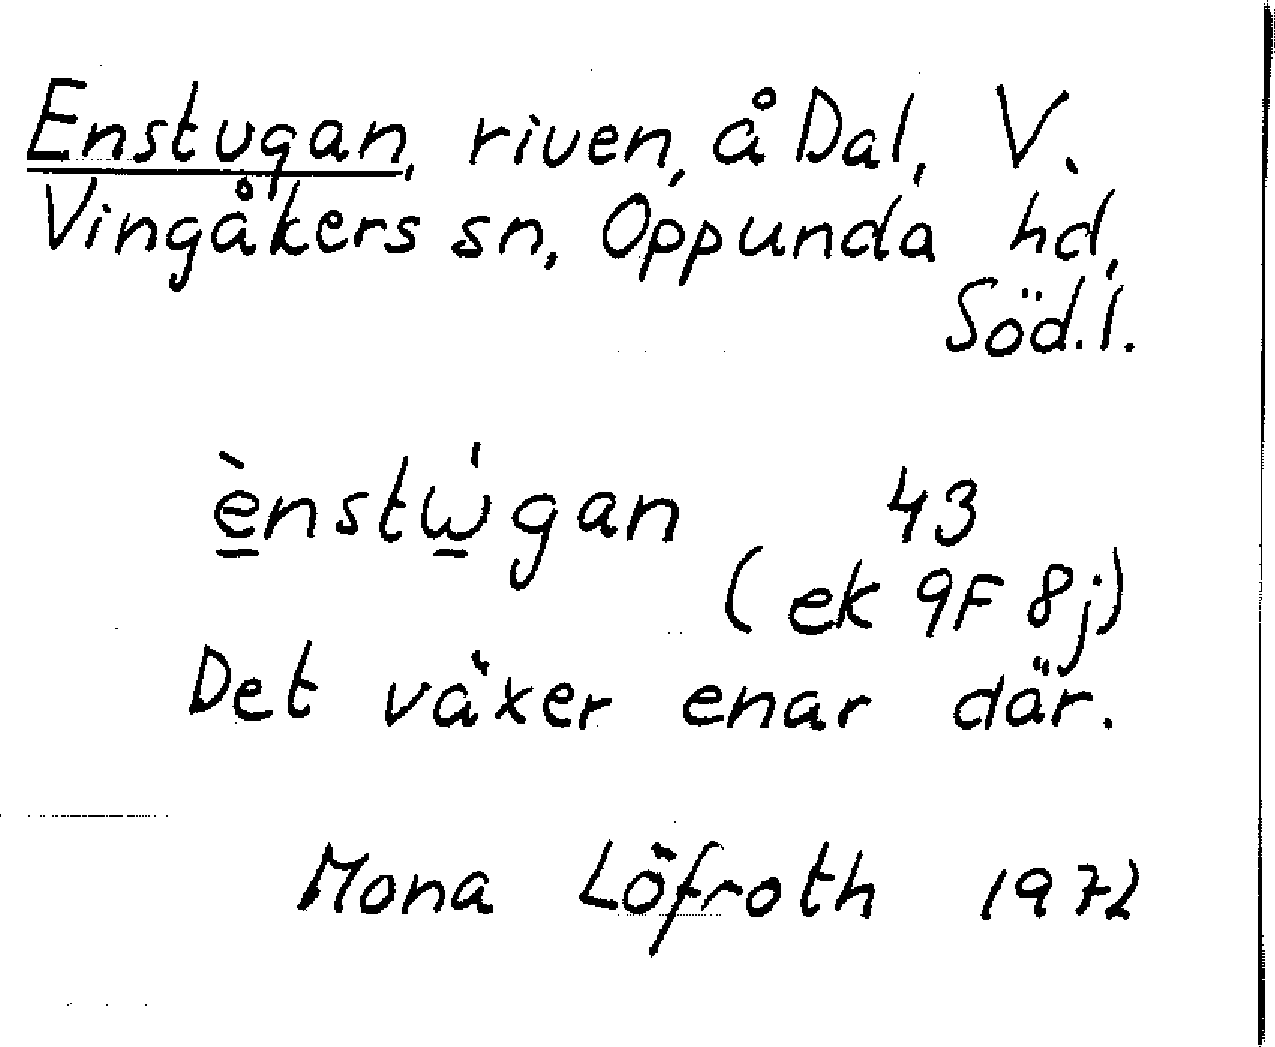 Enstugan, riven, å Dal, V.
Vingåkers sn, Oppunda hd,
Söd.l.
è̲nstώ̲gan 43
(ek 9F 8j)
Det växer enar där.
Mona Löfroth 1972